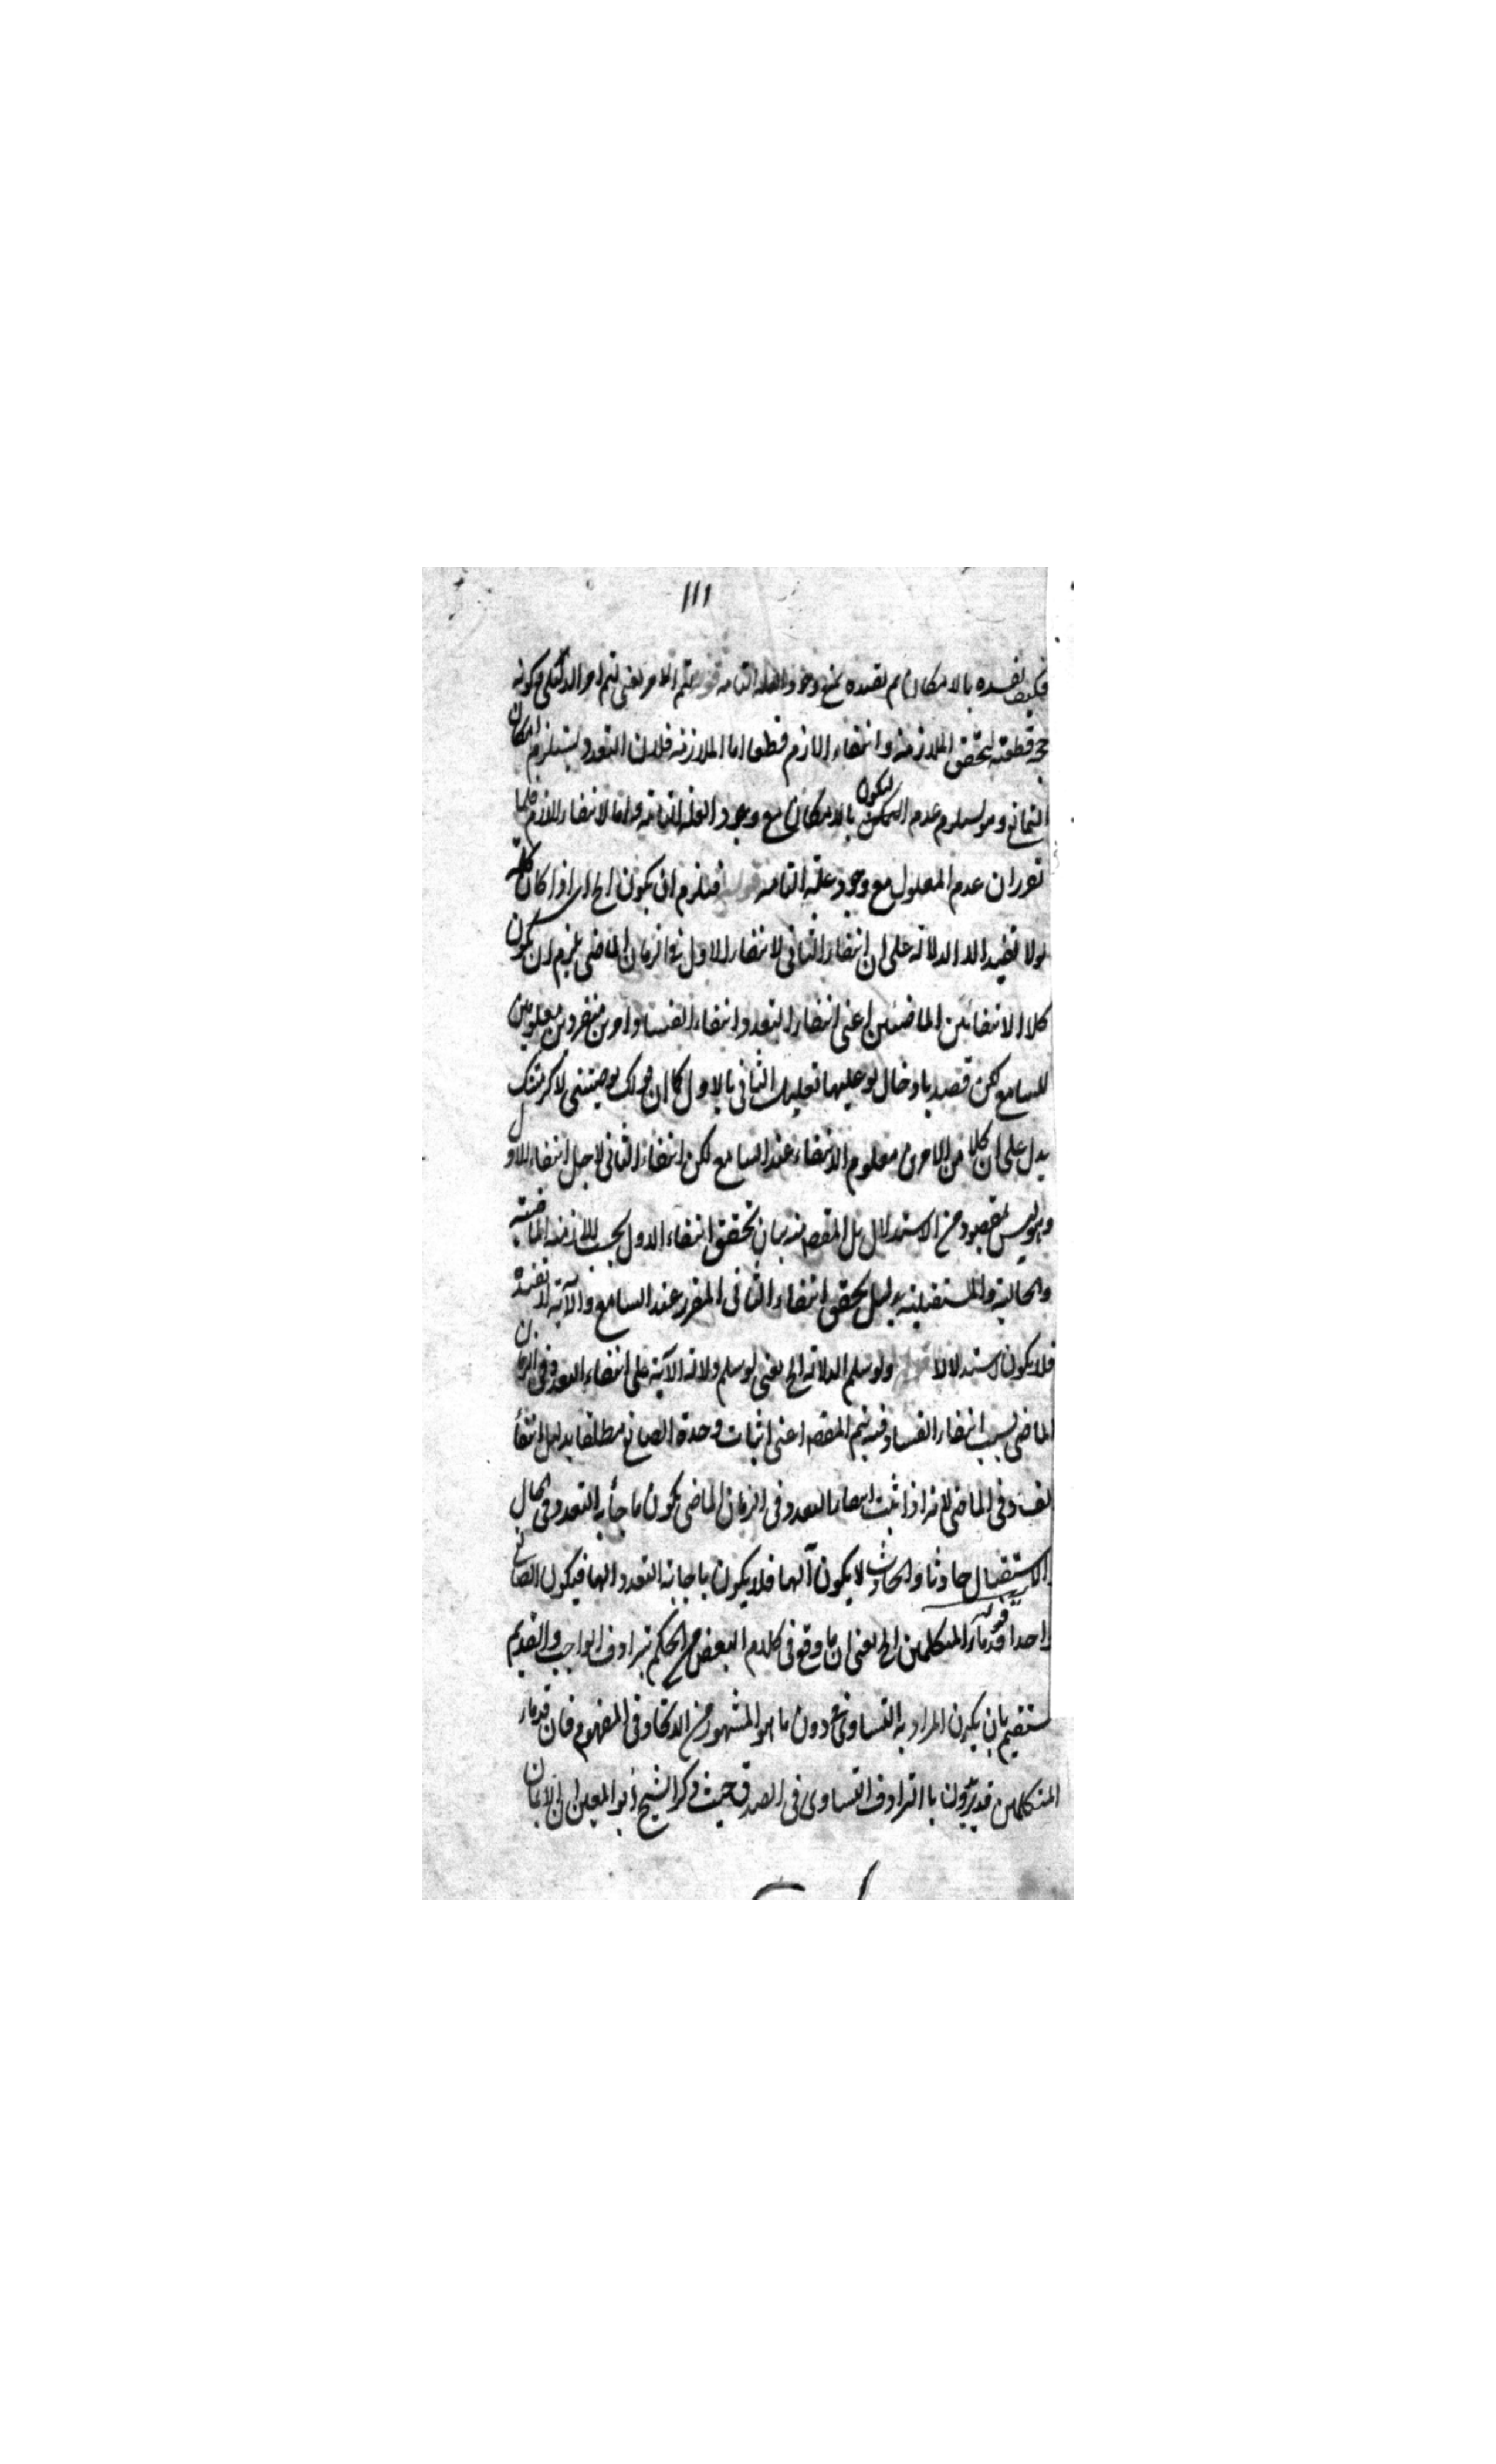 ١١١
فكيف نفسده بالامكان ثم نقيده مع وجود العلة التامة قوله يتم الامر يعنى يتم امر الدليل وكونه
حجة قطعية بتحقق الملازمة وانتفاء اللازم قطعا اما الملازمة فلان التعدد يستلزم امكان
التمانع وهو يستلزم عدم الممكن ليكون بالامكان مع وجود العلة التامة واما الانتفاء اللازم فلما
تقرر ان عدم المعلول مع وجود علته التامة قوله فيلزم ان يكون الخ اى اذا كان كلمة
لو لا تفيد الا الدلالة على ان انتفاء الثانى لانتفاء الاول فى الزمان الماضى يلزم ان يكون
كلا الانتفائين الماضيين اعنى انتفاء التعدد وانتفاء الفساد امرين مقررين معلومين
للسامع لكن قصد بادخال لو عليهما تعليل الثانى بالاول كما ان قولك لو جئتنى لاكرمتك
يدل على ان كلا من الامرين معلوم الانتفاء عند السامع لكن انتفاء الثانى لاجل انتفاء الاول
وهو ليس بمقصود من الاستدلال بل المقصد منه بيان تحقق انتفاء الاول بحسب الازمنة الماضية
والحالية والمستقبلية بدليل تحقق انتفاء الثانى المقرر عند السامع والآية لا تفيده
فلا يكون استدلالا ولو سلم الدلالة الخ يعنى لو سلم دلالة الآية على انتفاء التعدد فى الزمان
الماضى بسبب انتفاء الفساد فيه يتم المقصد اعنى اثبات وحدة الصانع مطلقا بدليل انتفاء
الفساد فى الماضى لانه اذا ثبت انتفاء التعدد فى الزمان الماضى يكون ما جاء به التعدد فى الحال
الاستقبال حادثا والحادث لا يكون آلها فلا يكون ما جاء به التعدد الها فيكون الصانع
واحدا قوله قدماء المتكلمين الخ يعنى ان ما وقع فى كلام البعض من الحكم بترادف الواجب والقديم
مستقيم بان يكون المراد به التساوى دون ما هو المشهور من الاتحاد فى المفهوم فان قدماء
المتكلمين قد يريدون بالترادف التساوى فى الصدق حيث ذكر الشيخ ابو المعين ان الايمان